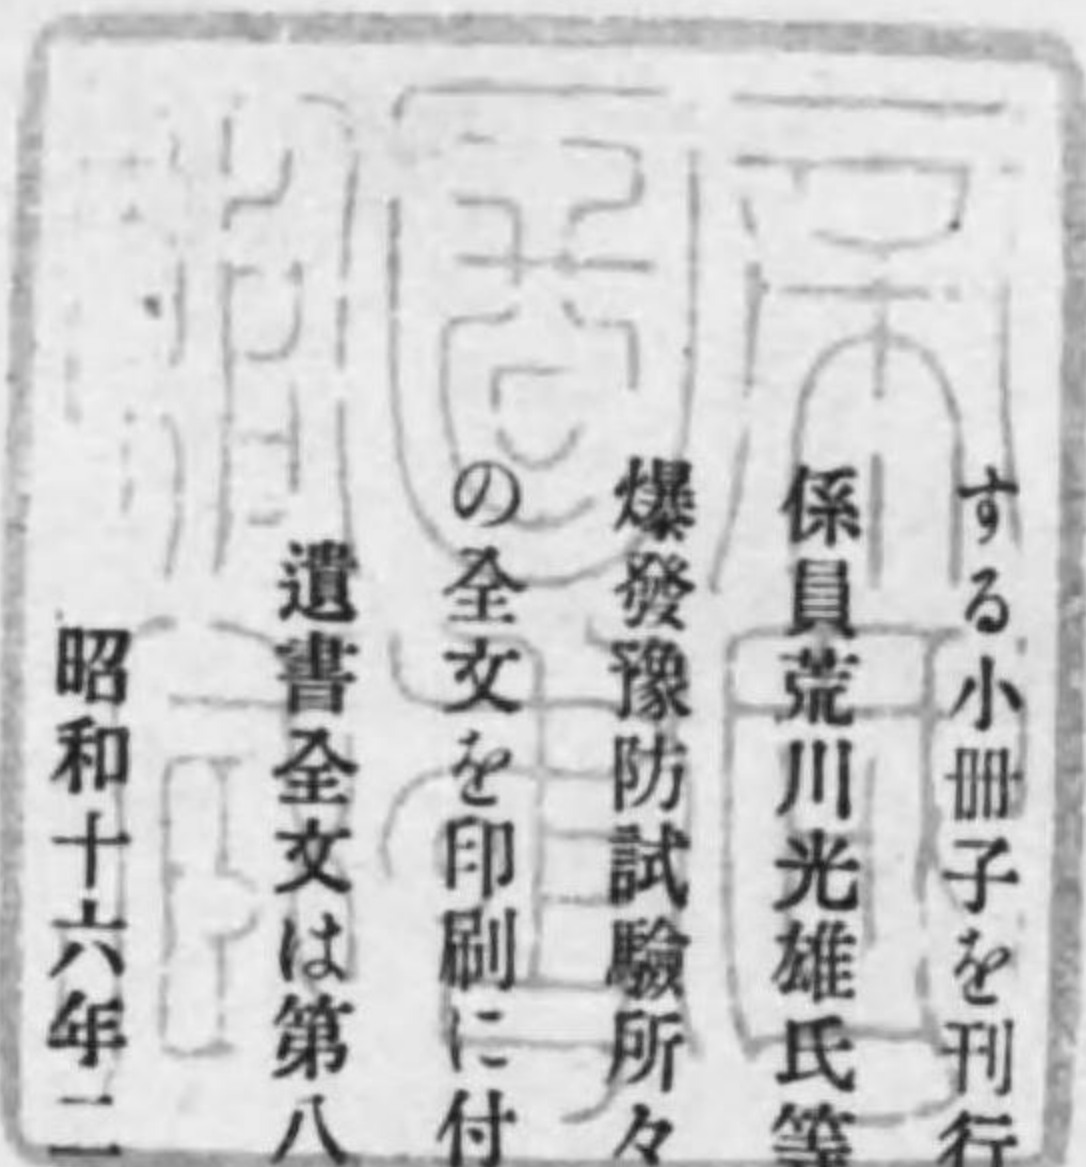 する小冊子を刊行
係員荒川光雄氏等
爆發豫防試驗所々
の全文を印刷に付
遺書全文は第八
昭和十六年二